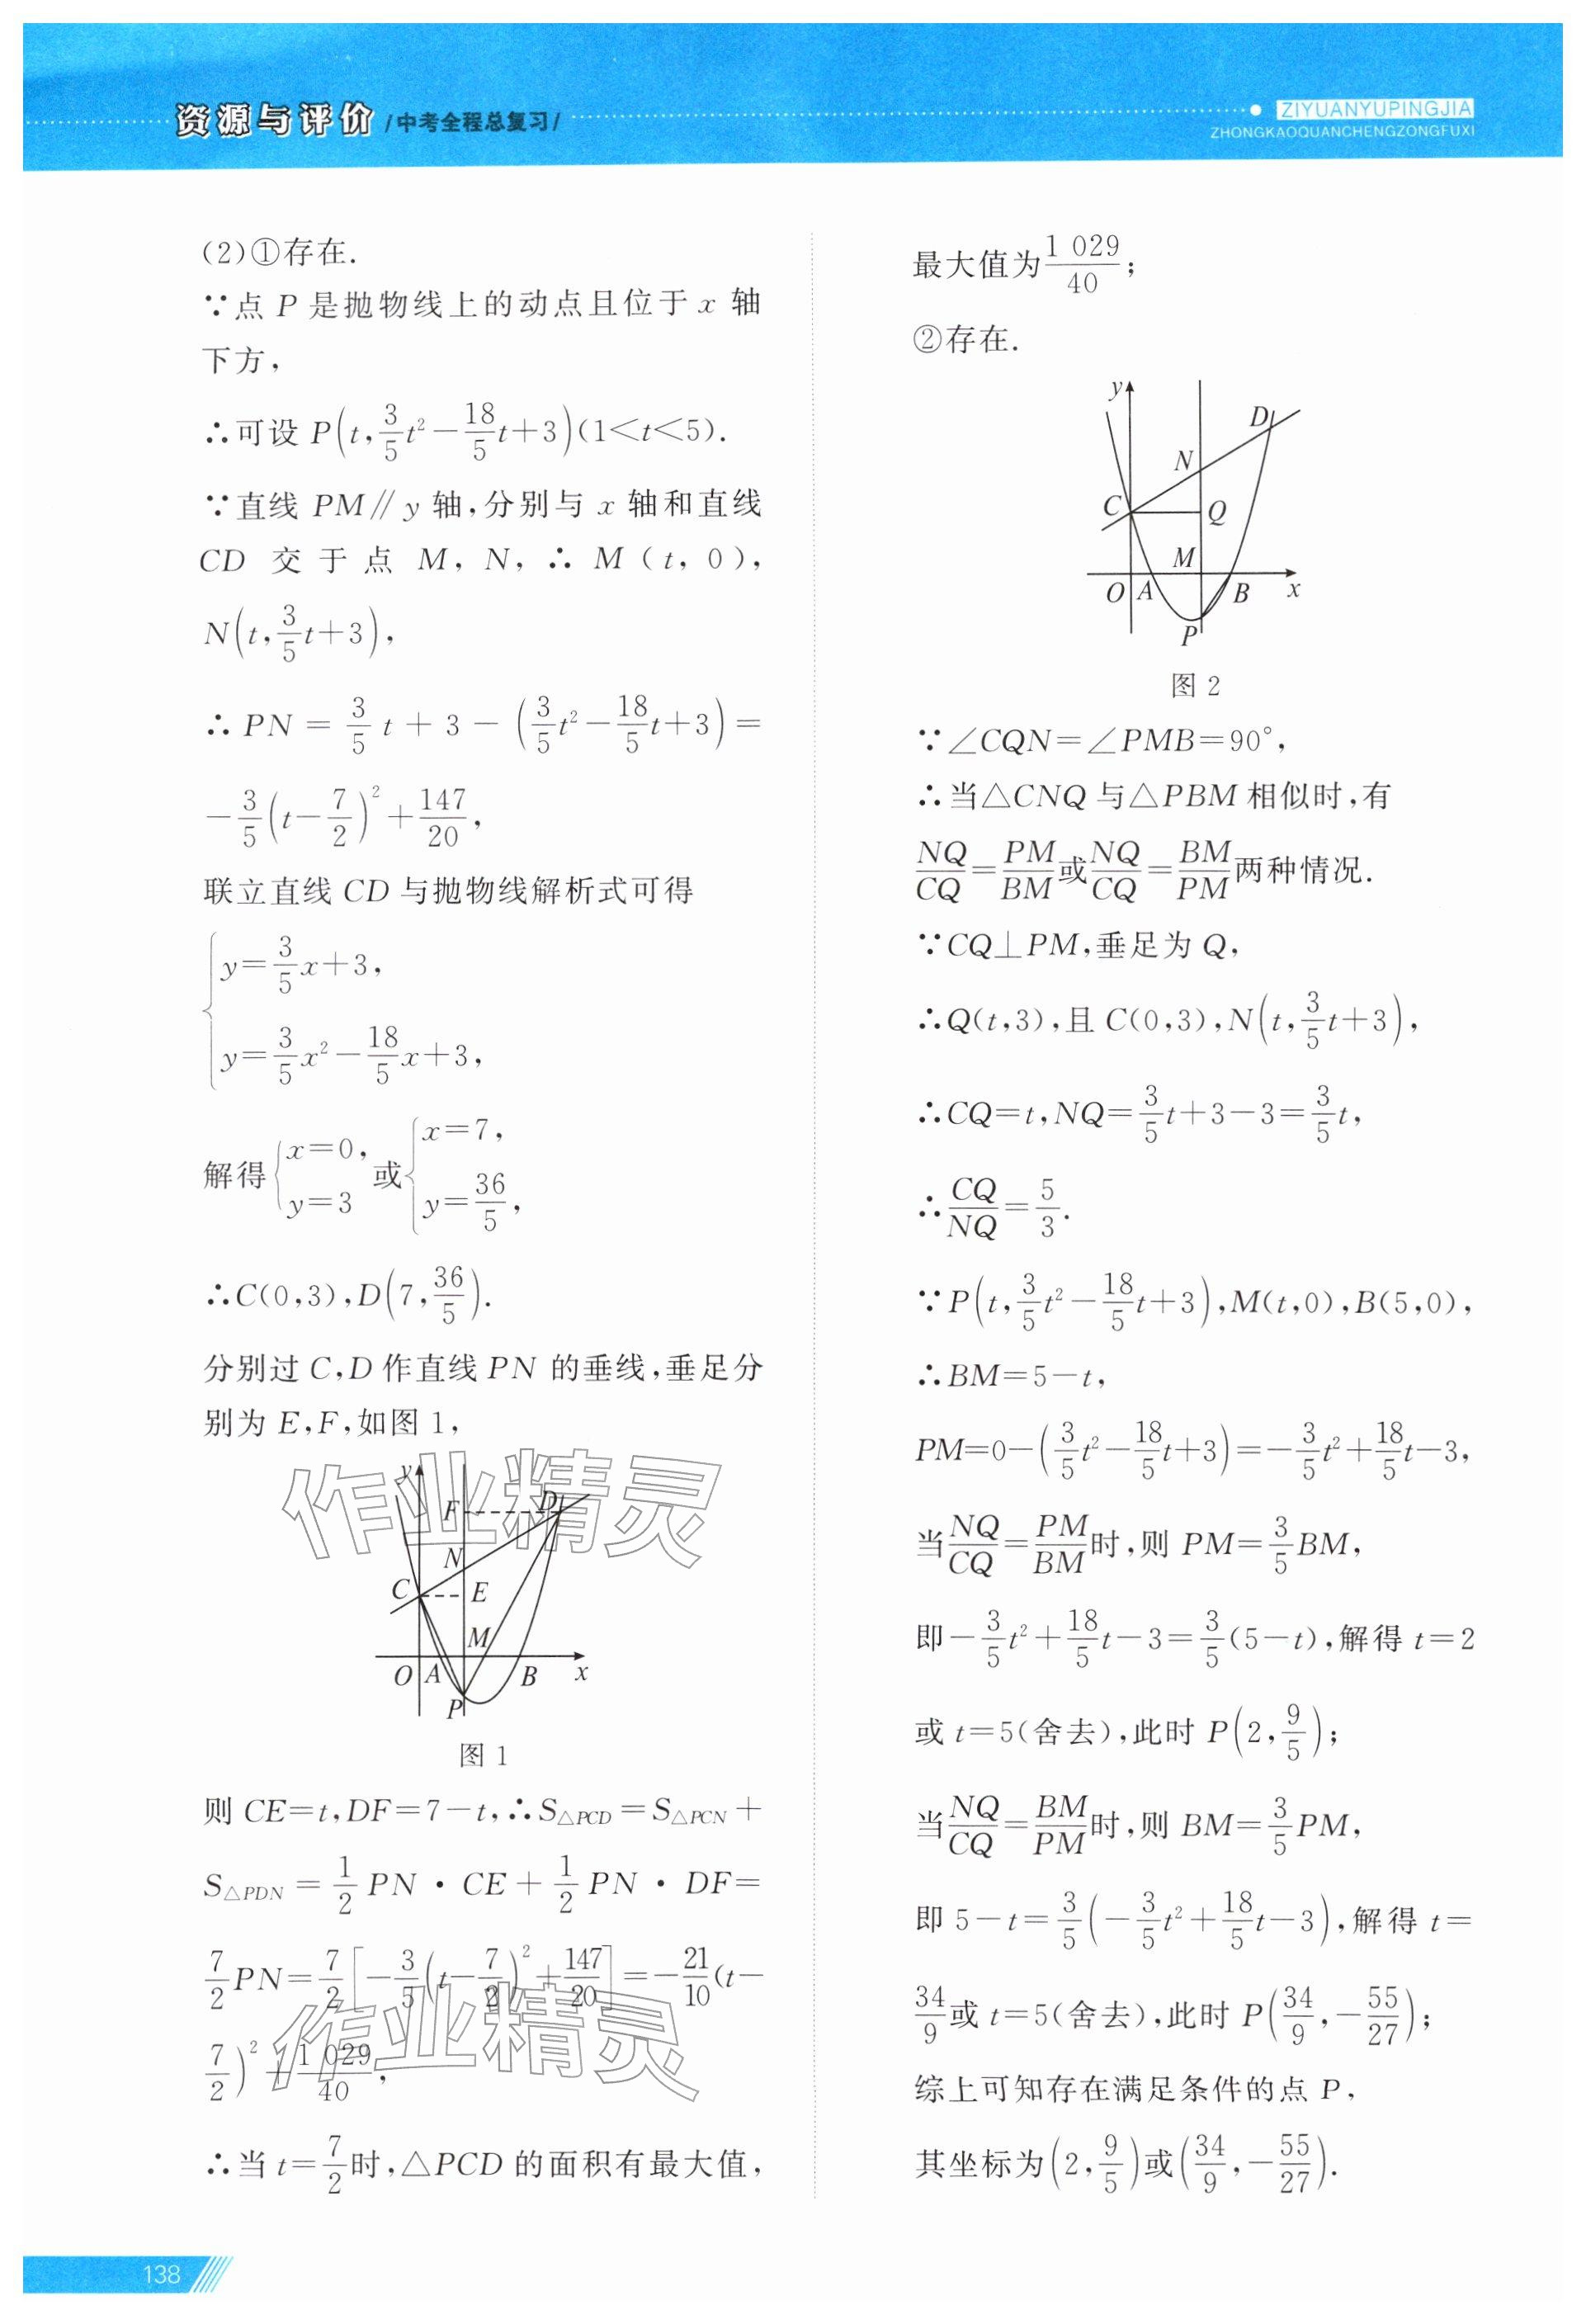 资源与评价 /中考全程总复习/
ZIYUANYUPINGJIA
ZHONGKAOQUANCHENGZONGFUXI
(2)①存在.
∵点 P 是抛物线上的动点且位于 x 轴
下方,
∴可设 P(t,3/5t²-18/5t+3)(1<t<5).
∵直线 PM∥y 轴,分别与 x 轴和直线
CD 交于点 M, N, ∴ M (t, 0),
N(t,3/5t+3),
∴ PN = 3/5 t + 3 - (3/5t²-18/5t+3) =
-3/5(t-7/2)²+147/20,
联立直线 CD 与抛物线解析式可得
{y=3/5x+3,
y=3/5x²-18/5x+3,
解得{x=0, y=3 或{x=7, y=36/5,
∴C(0,3),D(7,36/5).
分别过 C,D 作直线 PN 的垂线,垂足分
别为 E,F,如图 1,
作业精灵
y
F
D
N
C
E
M
O
A
B
x
P
图 1
则 CE=t,DF=7-t,∴S△PCD=S△PCN+
S△PDN = 1/2 PN · CE + 1/2 PN · DF=
7/2PN=7/2[-3/5(t-7/2)²+147/20]=-21/10(t-
7/2)²+1 029/40,
作业精灵
∴当 t=7/2时,△PCD 的面积有最大值,
最大值为1 029/40;
②存在.
y
D
N
C
Q
M
O
A
B
x
P
图 2
∵∠CQN=∠PMB=90°,
∴当△CNQ 与△PBM 相似时,有
NQ/CQ=PM/BM或NQ/CQ=BM/PM两种情况.
∵CQ⊥PM,垂足为 Q,
∴Q(t,3),且 C(0,3),N(t,3/5t+3),
∴CQ=t,NQ=3/5t+3-3=3/5t,
∴CQ/NQ=5/3.
∵P(t,3/5t²-18/5t+3),M(t,0),B(5,0),
∴BM=5-t,
PM=0-(3/5t²-18/5t+3)=-3/5t²+18/5t-3,
当NQ/CQ=PM/BM时,则 PM=3/5BM,
即-3/5t²+18/5t-3=3/5(5-t),解得 t=2
或 t=5(舍去),此时 P(2,9/5);
当NQ/CQ=BM/PM时,则 BM=3/5PM,
即 5-t=3/5(-3/5t²+18/5t-3),解得 t=
34/9或 t=5(舍去),此时 P(34/9,-55/27);
综上可知存在满足条件的点 P,
其坐标为(2,9/5)或(34/9,-55/27).
138